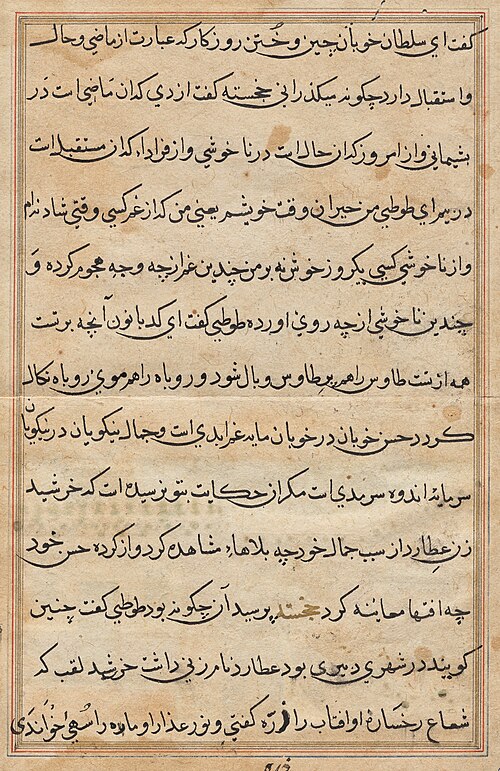 گفت ای سلطان خوبان چین و ختن روزگار که عبارت از ماضی و حال
و استقبال دارد چگونه میگذرانی خجسته گفت از دی که ان ماضی است در
پشیمانی و از امروز که ان حال است در ناخوشی و از فردا که ان مستقبل است
در بیم ای طوطی من حیران وقت خویشم یعنی من که از غم کسی وقتی شاد نه ام
و از ناخوشی کسی یکروز خوش نه بر من چندین غم از چه وجه هجوم کرده و
چندین ناخوشی از چه روی اورده طوطی گفت ای کدبانون آنچه بر تست
همه از تست طاوس را هم پر طاوس وبال شود و روباه را هم موی روباه نکال
کردد حسن خوبان در خوبان مایه غم ابدی است و جمال نیکویان در نیکویان
سرمایه اندوه سرمدی است مکر ان حکایت بتو نرسیده است که خرشید
زن عطارد از سبب جمال خود چه بلاها مشاهده کرد و از کرده حسن خود
چه افتها معاینه کرد خجسته پرسید آن چگونه بود طوطی گفت چنین
کویند در شهری دبیری بود عطارد نام زنی داشت خرشید لقب که
شعاع رخساره او افتاب را ذره کفتی و نور عذار او ماه را سهی خواندی